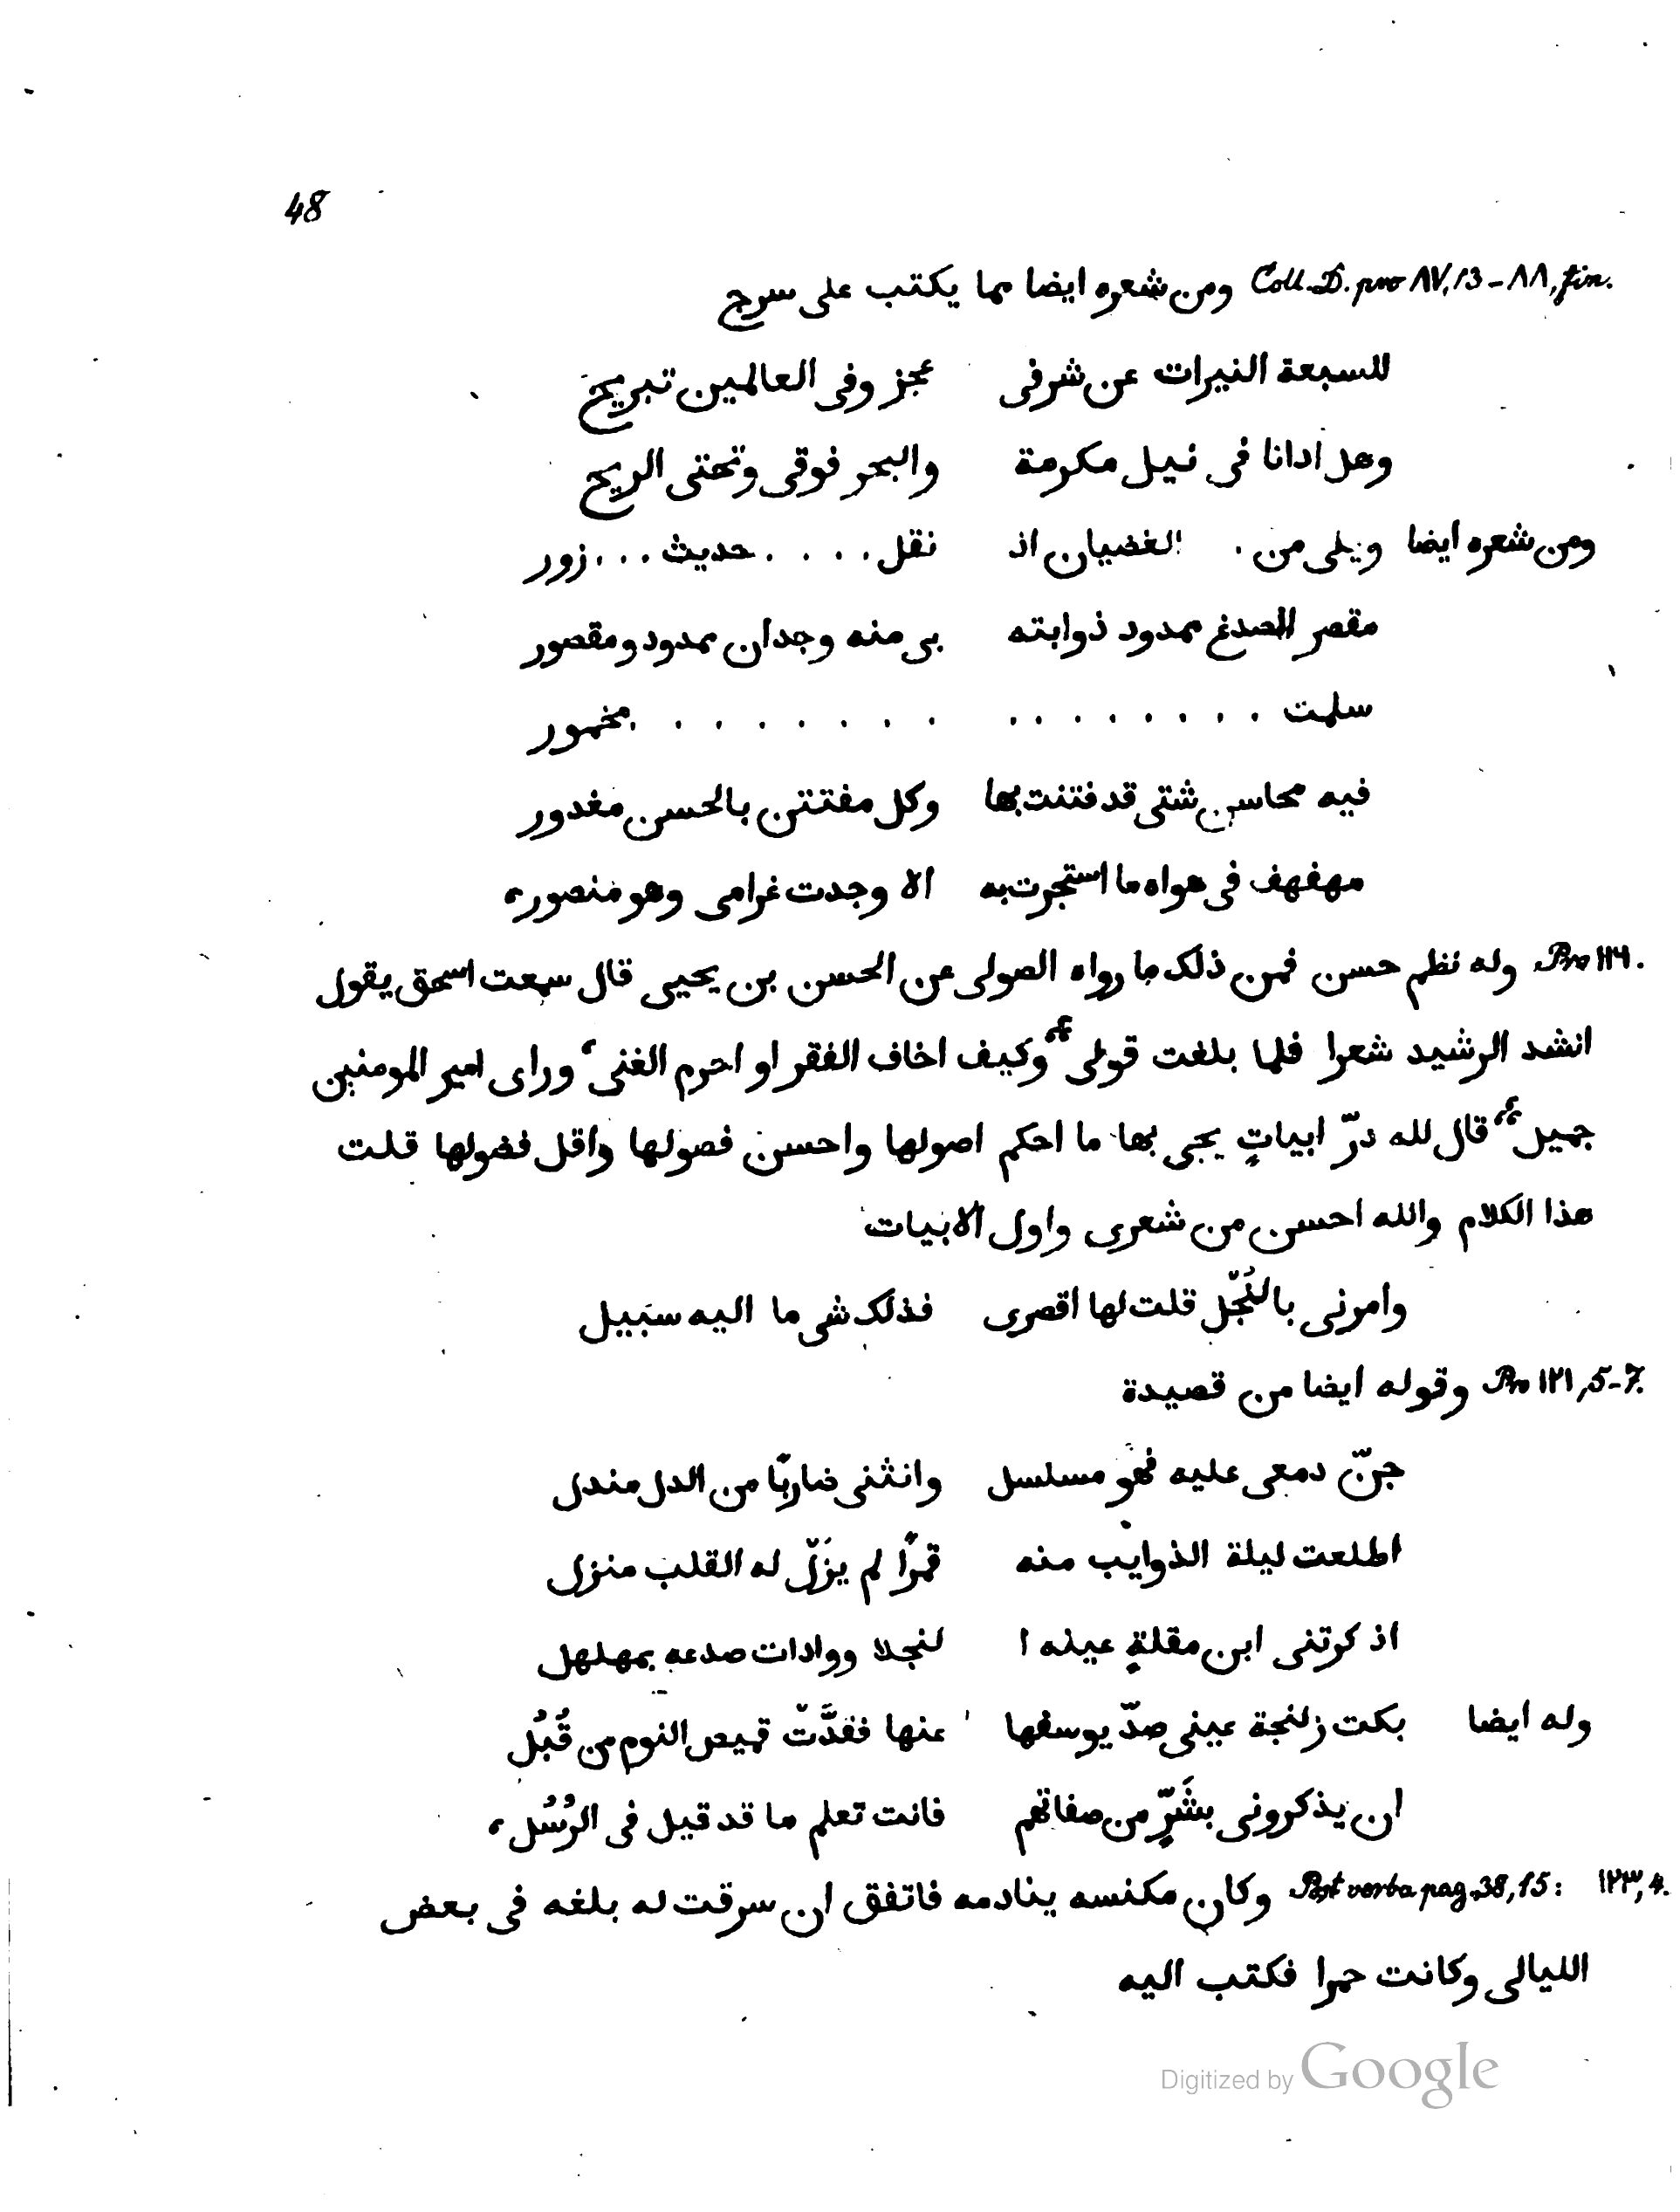 48
Coll. D. pro ٨٧, 13 - ٨٨, fin. ومن شعره ايضا مما يكتب على سرج
للسبعة النيرات عن شرفى عجز وفى العالمين تبريح
وهل ادانا فى نيل مكرمة والبحر فوقى وتحتى الريح
ومن شعره ايضا ويلى من . الغضبان اذ نقل . . . . حديث . . . زور
مقصر الصدغ ممدود ذوابته بى منه وجدان ممدود ومقصور
سلمت . . . . . . . . . . . . . . . . مخمور
فيه محاسن شتى قد فتنت بها وكل مفتتن بالحسن مغدور
مهفهف فى هواه ما استجرت به الا وجدت غرامى وهو منصور،
Pro ١١٩. وله نظم حسن فمن ذلك ما رواه الصولى عن الحسن بن يحيى قال سمعت اسحق يقول
انشد الرشيد شعرا فلما بلغت قولى وكيف اخاف الفقر او احرم الغنى، وراى امير المومنين
جميل قال لله درّ ابياتٍ يجى بها ما احكم اصولها واحسن فصولها واقل فضولها قلت
هذا الكلام والله احسن من شعرى واول الابيات
وامرنى بالنُجّل قلت لها اقصرى فذلك شى ما اليه سبيل
Pro ١٢١, 5-7. وقوله ايضا من قصيدة
جنّ دمعى عليه فهو مسلسل وانثنى ضاربًا من الدل مندل
اطلعت ليلة الذوايب منه قمرًا لم يزَلّ له القلب منزل
اذ كرتنى ابن مقلةٍ عينه ا لنجلا ووادات صدعه بمهلهل
وله ايضا بكت زلنجة عينى صدّ يوسفها عنها فقدَّتْ قميص النوم من قُبُل
ان يذكرونى بشَرٍّ من صفاتهم فانت تعلم ما قد قيل فى الرُسُل،
١٢٣, 4. Post verba pag. 38, 15: وكان مكنسه ينادمه فاتفق ان سرقت له بلغه فى بعض
الليالى وكانت حمرا فكتب اليه
Digitized by Google